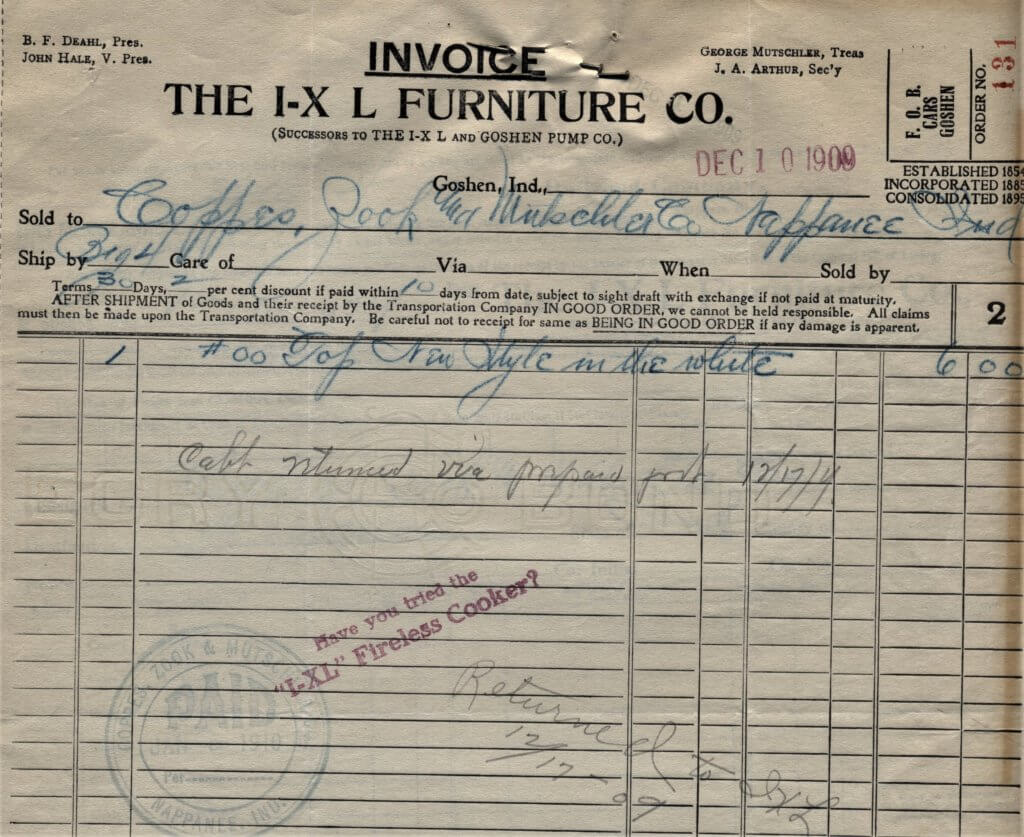 B. F. DEAHL, Pres.
JOHN HALE, V. Pres.
INVOICE
GEORGE MUTSCHLER, Treas
J. A. ARTHUR, Sec'y
THE I-X L FURNITURE CO.
(SUCCESSORS TO THE I-X L AND GOSHEN PUMP CO.)
F. O. B.
CARS
GOSHEN
ORDER NO.
131
DEC 10 1909
ESTABLISHED 1854
INCORPORATED 1885
CONSOLIDATED 1895
Goshen, Ind.,
Sold to Coppes, Zook and Mutschler Co Nappanee Ind
Ship by Big 4 Care of Via When Sold by
Terms 30 Days, 2 per cent discount if paid within 10 days from date, subject to sight draft with exchange if not paid at maturity.
AFTER SHIPMENT of Goods and their receipt by the Transportation Company IN GOOD ORDER, we cannot be held responsible. All claims
must then be made upon the Transportation Company. Be careful not to receipt for same as BEING IN GOOD ORDER if any damage is apparent.
2
1 #00 Top New Style in the white 6 00
Cabt returned via prepaid 12/17/9
Have you tried the
"I-XL" Fireless Cooker?
COPPES, ZOOK & MUTSCHLER
PAID
JAN 1910
Per
NAPPANEE, IND.
Returned to IXL
12/17-09